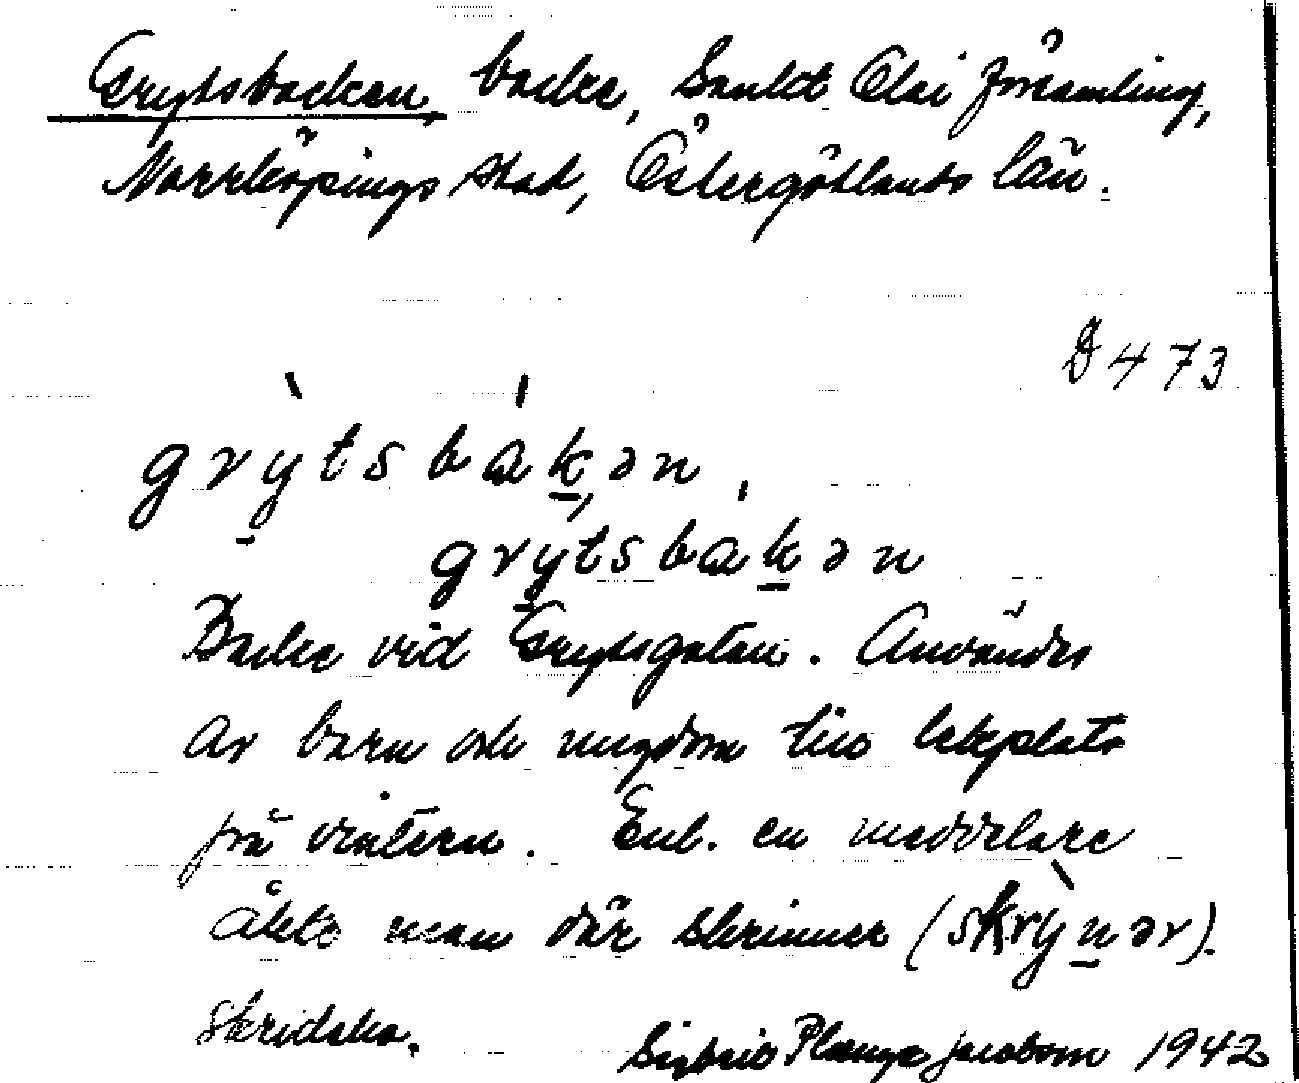 Grytsbacken, backe, Sankt Olai församling,
Norrköpings stad, Östergötlands län.
473
grỳtsbákən,
grýtsbakən
Backe vid Grytsgatan. Användes
av barn och ungdom till lekplats
på vintern. Enl. en meddelare
åkte man där skrinner (skrỳnər).
skridsko.
Sigbrit Plænge Jacobson 1942